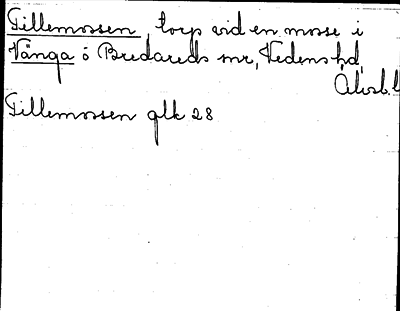 Tillemossen, torp vid en mosse i
Vånga ö Bredareds snr, Vedens hd,
Älvsb. l
Tillemossen glk 28